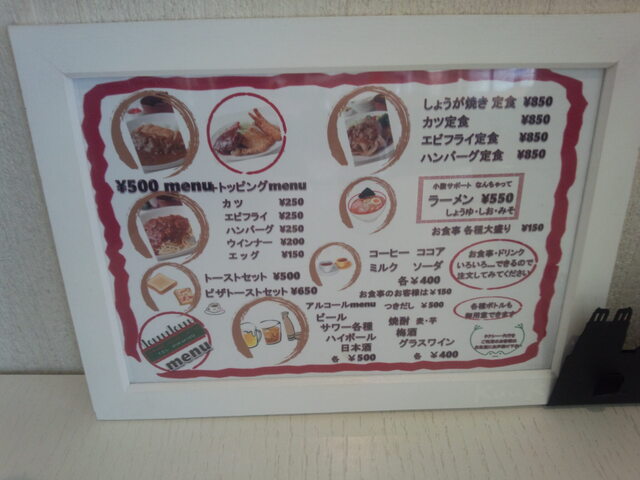 しょうが焼き 定食 ¥850
カツ定食 ¥850
エビフライ定食 ¥850
ハンバーグ定食 ¥850
¥500 menu
トッピングmenu
カツ ¥250
エビフライ ¥250
ハンバーグ ¥250
ウインナー ¥200
エッグ ¥150
小腹サポート なんちゃって
ラーメン ¥550
しょうゆ・しお・みそ
お食事 各種大盛り ¥150
トーストセット ¥500
ピザトーストセット ¥650
コーヒー ココア
ミルク ソーダ
各¥400
お食事のお客様は¥150
お食事・ドリンク
いろいろ…できるので
注文してみてください
アルコールmenu つきだし ¥500
ビール
サワー各種
ハイボール
日本酒
各 ¥500
焼酎 麦・芋
梅酒
グラスワイン
各 ¥400
各種ボトルも
御用意できます
menu